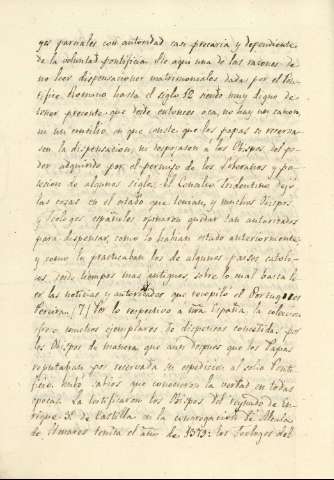 ges parciales con autoridad casi precaria y dependiente
de la voluntad pontificia. He aqui una de las razones de
no leer dispensaciones matrimoniales dadas por el Pon-
tifice Romano hasta el siglo 12 siendo muy digno de
tener presente que desde entonces acá no hay un canon,
ni un concilio, en que conste que los papas se reserva-
sen la dispensacion, ni despojasen a los Obispos del po-
der adquirido por el permiso de los Soberanos y po-
sesion de algunos siglos. El Concilio Tridentino dejó
las cosas en el estado que tenian, y muchos Obispos
y Teologos españoles opinaron quedar tan autorizados
para dispensar, como lo habian estado anteriormente,
y como lo practicaban los de algunos paises catoli-
cos, desde tiempos mas antiguos, sobre lo cual basta le-
er las noticias y autoridades que recopiló el Portugues
Pereira (7) Por lo respectivo a esta España, la coleccion
ofrece muchos ejemplares de dispensas concedidas por
los Obispos de manera que aun despues que los Papas
reputaban por reservada su expedicion al solio Ponti-
ficio, hubo sabios que conocieron la verdad en todas
epocas. La testificaron los Obispos del reynado de En-
rique 3º de Castilla en la congregacion de Alcala
de Henares tenida el año de 1399: los Teologos del